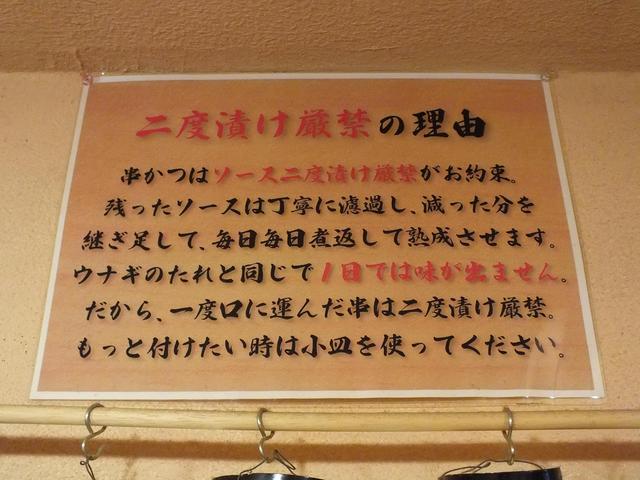 二度漬け厳禁の理由
串かつはソース二度漬け厳禁がお約束。
残ったソースは丁寧に濾過し、減った分を
継ぎ足して、毎日毎日煮返して熟成させます。
ウナギのたれと同じで1日では味が出ません。
だから、一度口に運んだ串は二度漬け厳禁。
もっと付けたい時は小皿を使ってください。